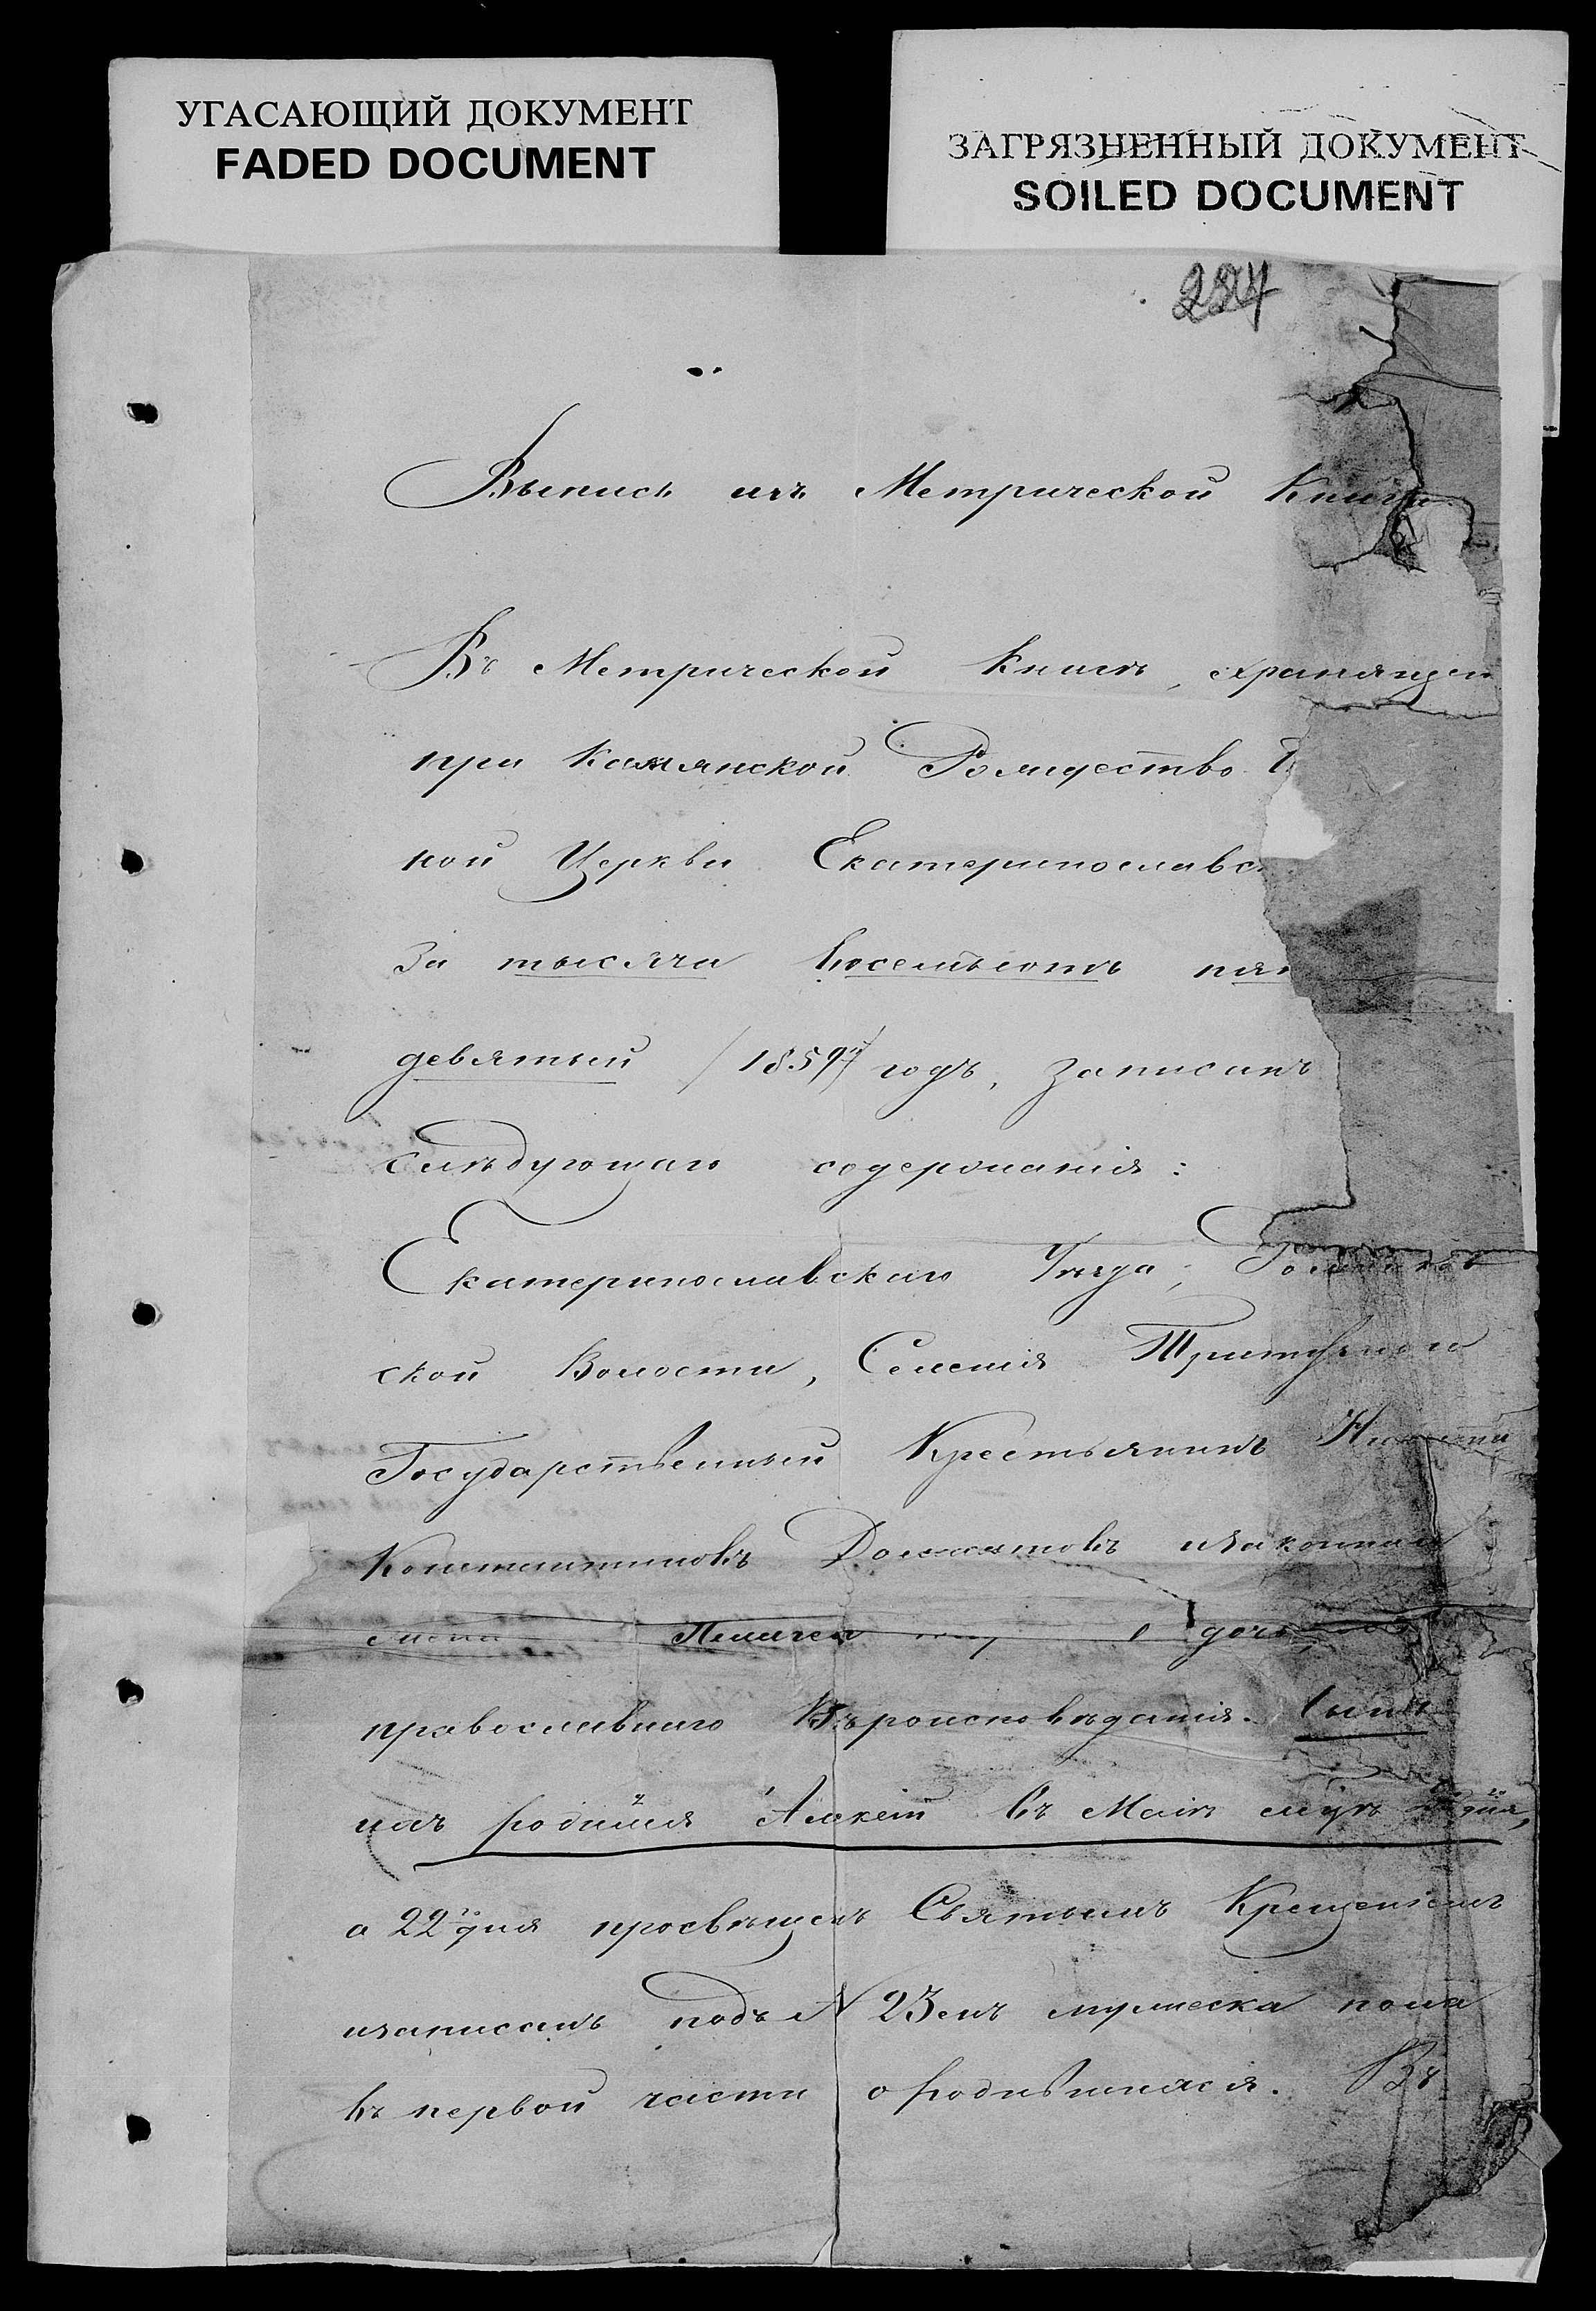 УГАСАЮЩИЙ ДОКУМЕНТ
FADED DOCUMENT
ЗАГРЯЗНЕННЫЙ ДОКУМЕНТ
SOILED DOCUMENT
Выпись изъ Метрической Книги
Въ Метрической Книгѣ, хранящей
при Камянской Рождество
ной Церкви Екатеринославс
За тысяча восемьсотъ пят
девятый /1859й/ годъ, записанъ
слѣдующаго содержанія:
Екатеринославскаго Уѣзда,
ской Волости, Селенія
Государственный Крестьянинъ
Константиновъ изаконная
жена Пелагея
православнаго Вѣроисповѣданія. Сынъ
ихъ родился Алексѣй въ Маіѣ м-цѣ дня,
а 22го дня просвѣщенъ Святымъ Крещеніемъ
изаписанъ подъ N 23емъ мужеска пола
въ первой части о родившихся. Въ